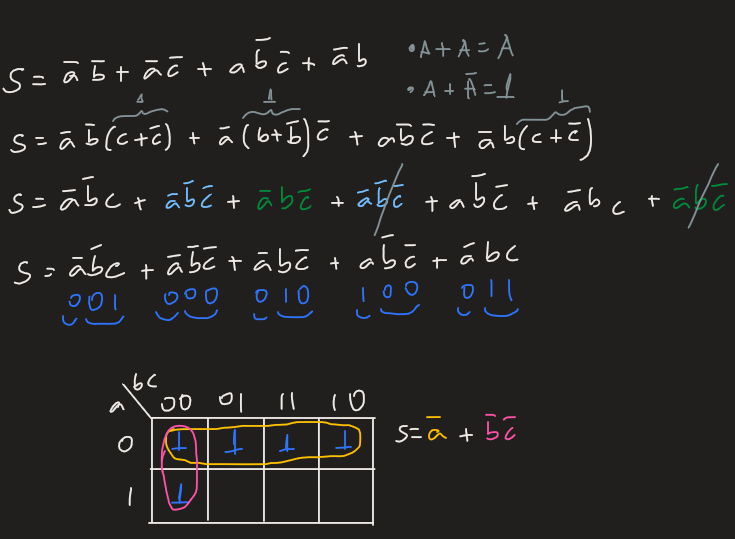 S = a̅ b̅ + a̅ c̅ + a b̅ c̅ + a̅ b
• A + A = A
• A + A̅ = 1
1 1 1
S = a̅ b̅ (c + c̅) + a̅ (b + b̅) c̅ + a b̅ c̅ + a̅ b (c + c̅)
S = a̅ b̅ c + a̅ b̅ c̅ + a̅ b c̅ + a̅ b̅ c̅ + a b̅ c̅ + a̅ b c + a̅ b c̅
S = a̅ b̅ c + a̅ b̅ c̅ + a̅ b c̅ + a b̅ c̅ + a̅ b c
001 000 010 100 011
a \ bc 00 01 11 10
0 1 1 1 1
1 1
S = a̅ + b̅ c̅